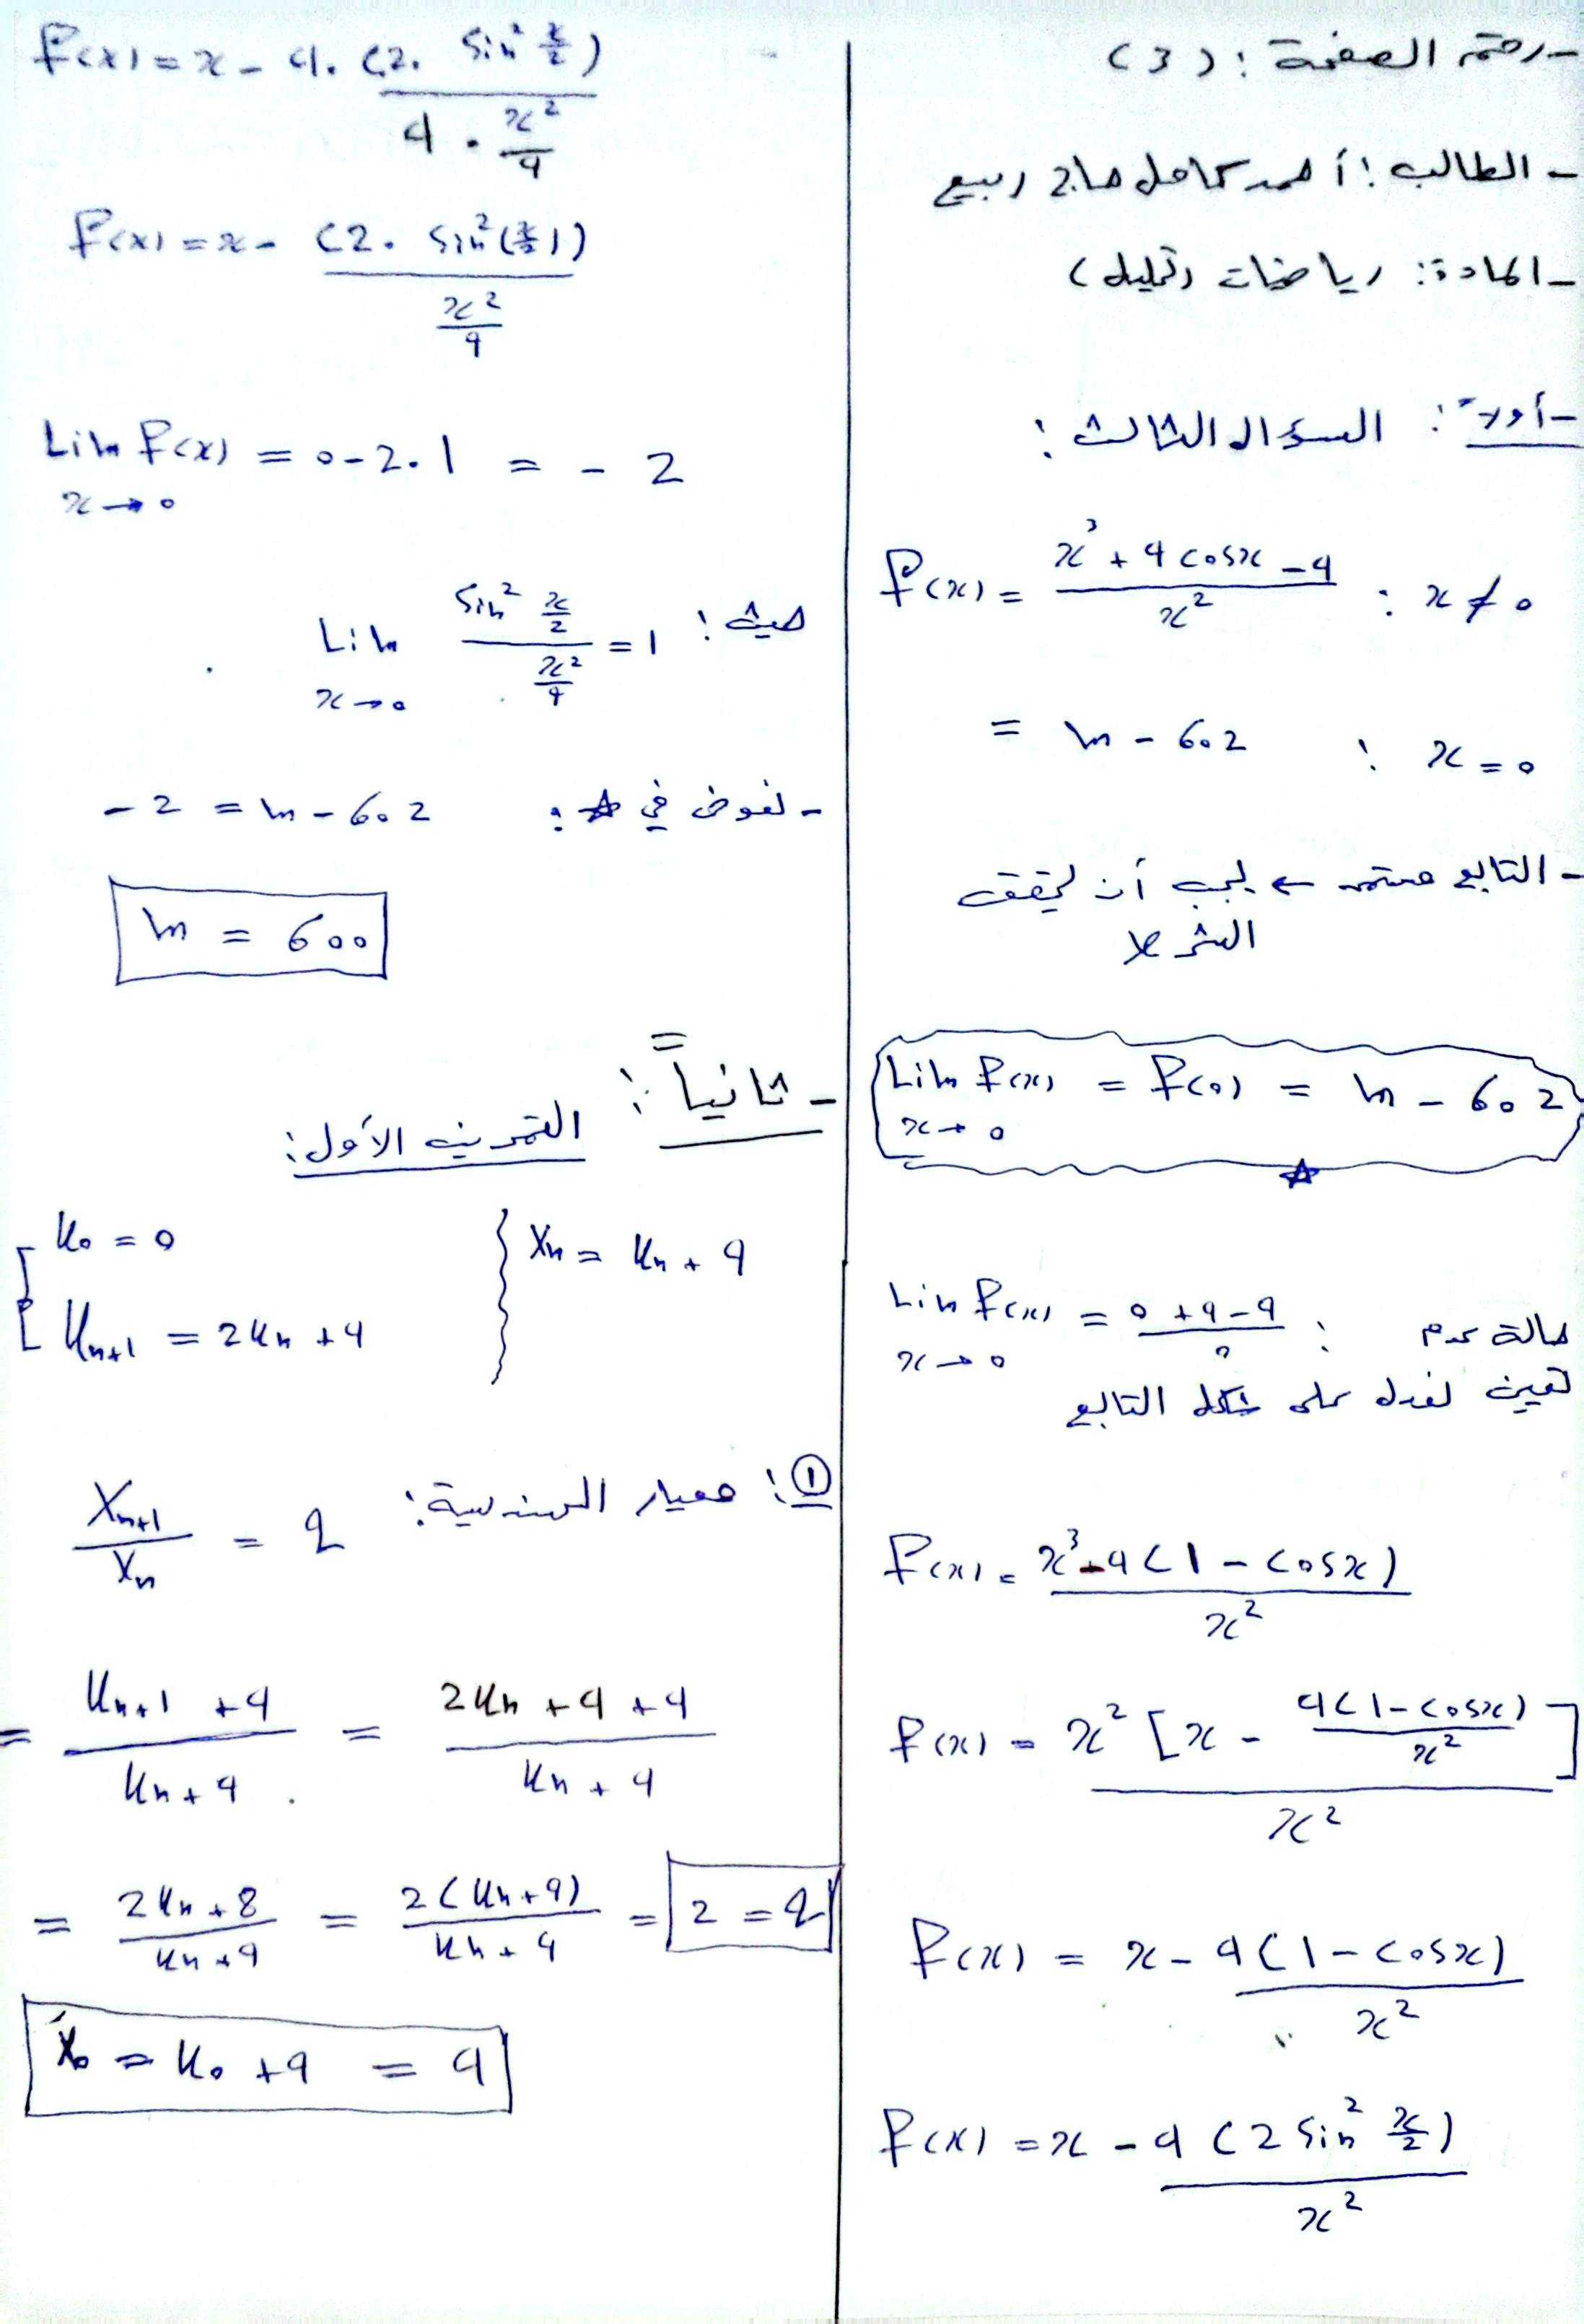 - رقم الصفحة : (3)
- الطالب : أحمد كامل حاج ربيع
- المادة : رياضيات (تحليل)
- أولاً : السؤال الثالث :
f(x) = (x³ + 4 cosx - 4) / x² : x ≠ 0
= m - 602 : x = 0
- التابع مستمر ← يجب أن يحقق
الشرط
Lim f(x) = f(0) = m - 602
x → 0
☆
Lim f(x) = (0 + 4 - 4) / 0 : حالة عدم
x → 0
تعيين نعدل على شكل التابع
f(x) = (x³ - 4(1 - cosx)) / x²
f(x) = x² [x - 4(1 - cosx) / x²] / x²
f(x) = x - 4(1 - cosx) / x²
f(x) = x - 4(2 sin² x/2) / x²
f(x) = x - 4. (2. sin² x/2) / (4 . x²/4)
f(x) = x - (2. sin²(x/2)) / (x²/4)
Lim f(x) = 0 - 2.1 = - 2
x → 0
حيث : Lim (sin² x/2) / (x²/4) = 1
x → 0
- نعوض في ☆ : - 2 = m - 602
m = 600
- ثانياً : التمرين الأول :
u₀ = 0
uₙ₊₁ = 2uₙ + 4
Xₙ = uₙ + 4
① : معيار الهندسية : Xₙ₊₁ / Xₙ = q
= (uₙ₊₁ + 4) / (uₙ + 4) = (2uₙ + 4 + 4) / (uₙ + 4)
= (2uₙ + 8) / (uₙ + 4) = 2(uₙ + 4) / (uₙ + 4) = 2 = q
X₀ = u₀ + 4 = 4